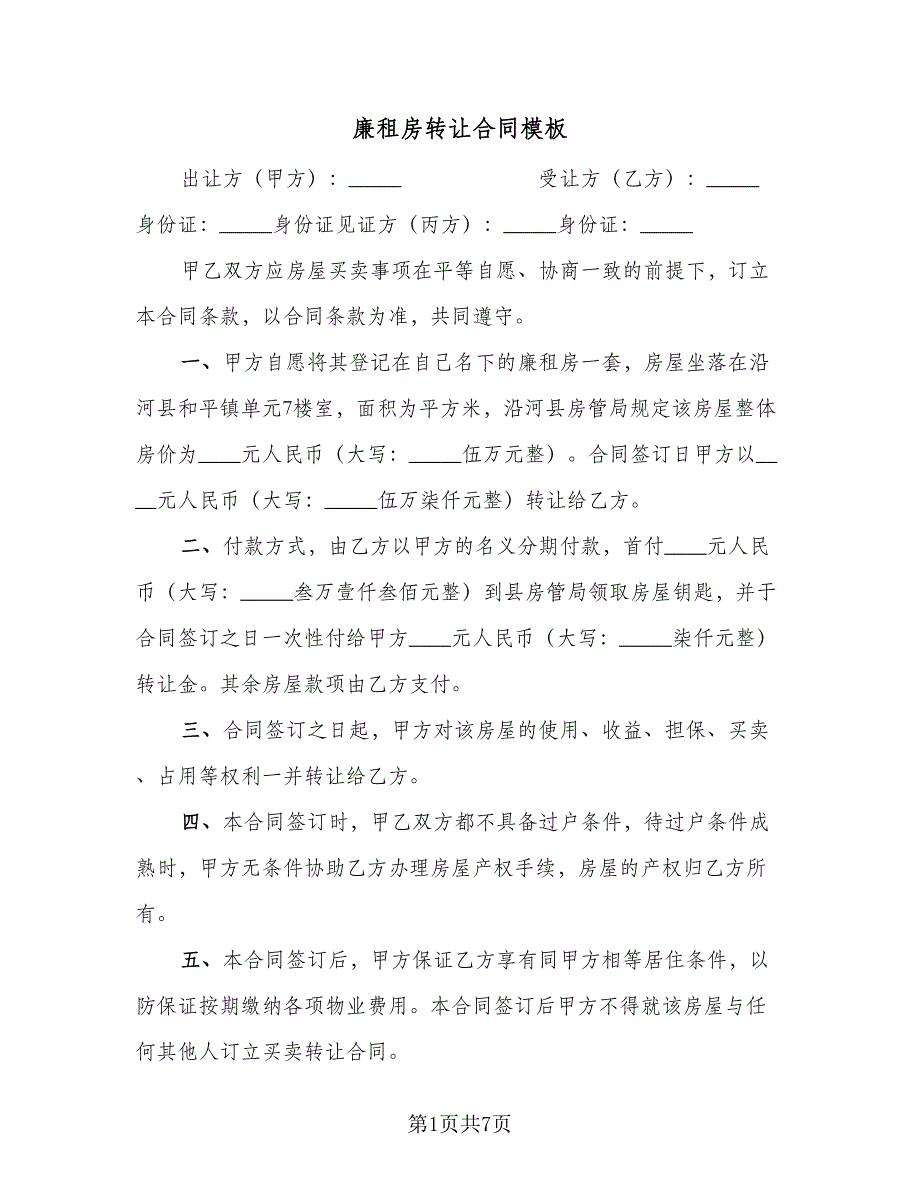 廉租房转让合同模板
出让方（甲方）：_____ 受让方（乙方）：_____
身份证：_____身份证见证方（丙方）：_____身份证：_____
甲乙双方应房屋买卖事项在平等自愿、协商一致的前提下，订立
本合同条款，以合同条款为准，共同遵守。
一、甲方自愿将其登记在自己名下的廉租房一套，房屋坐落在沿
河县和平镇单元7楼室，面积为平方米，沿河县房管局规定该房屋整体
房价为____元人民币（大写：_____伍万元整）。合同签订日甲方以__
__元人民币（大写：_____伍万柒仟元整）转让给乙方。
二、付款方式，由乙方以甲方的名义分期付款，首付____元人民
币（大写：_____叁万壹仟叁佰元整）到县房管局领取房屋钥匙，并于
合同签订之日一次性付给甲方____元人民币（大写：_____柒仟元整）
转让金。其余房屋款项由乙方支付。
三、合同签订之日起，甲方对该房屋的使用、收益、担保、买卖
、占用等权利一并转让给乙方。
四、本合同签订时，甲乙双方都不具备过户条件，待过户条件成
熟时，甲方无条件协助乙方办理房屋产权手续，房屋的产权归乙方所
有。
五、本合同签订后，甲方保证乙方享有同甲方相等居住条件，以
防保证按期缴纳各项物业费用。本合同签订后甲方不得就该房屋与任
何其他人订立买卖转让合同。
第1页共7页